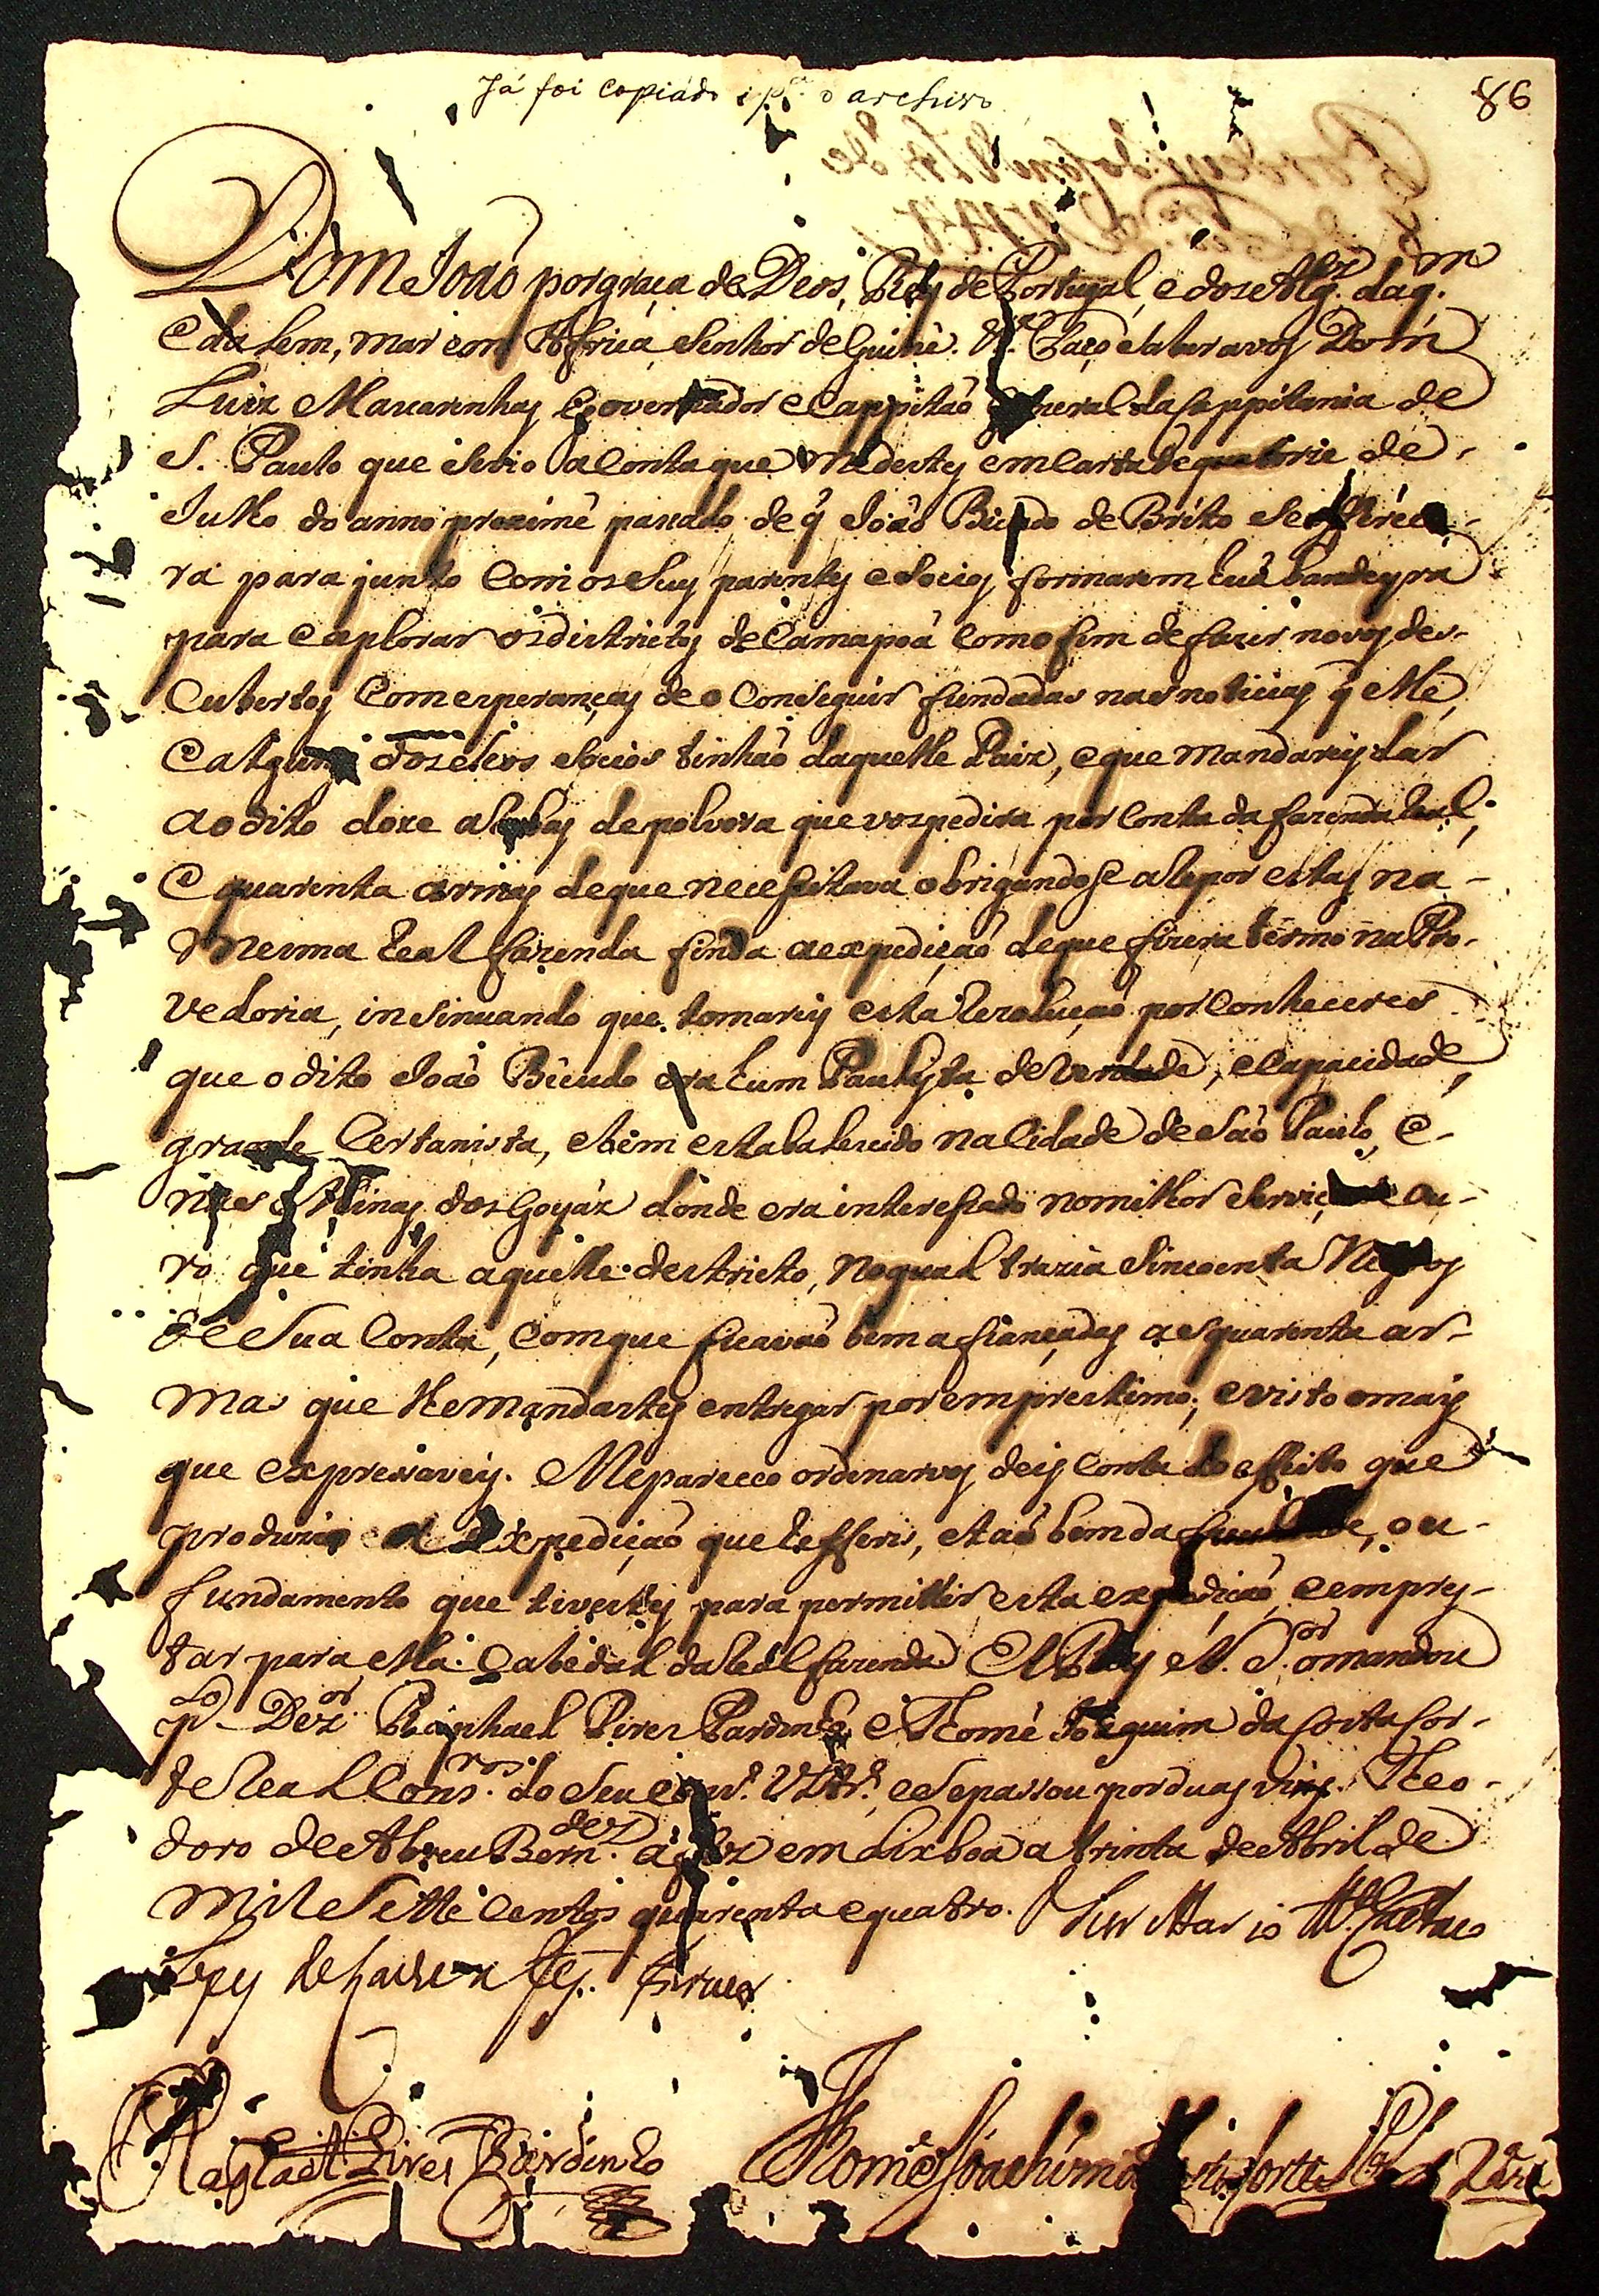 Já foi copiádo p.ª o archivo
86
Dom Joaõ por graça de Deos, Rey de Portugal, e dos Alg.es daq.m
e dalem, mar em Africa Senhor de Guiné. &.ª Faço saber a vos Dom
Luiz Mascarenhas Governador e Cappitaõ General da Cappitania de
S. Paulo que se vio a conta que me destes em carta de quatorze de
Julho do anno proximé passado de q̃ Joaõ Bicudo de Brito se offérece-
rá para junto com os seus parentes e socios formarem huã bandeyra
para explorar os districtos de Camapoã com o fim de fazer novos des-
cubertos com esperanças de o conseguir fundadas nas noticias q̃ elle,
e alguns dos ditos socios tinhaõ daquelle Paiz, e que mandareis dar
ao dito doze arrobas de polvora que vos pedira por conta da fazenda Real;
e quarenta armas de que necessitava obrigandose a repor estas na
mesma Real fazenda finda a expediçaõ de que fizera termo na Pro-
vedoria, insinuando que tomareis esta rezoluçaõ por conheceres
que o dito Joaõ Bicudo era hum Paulista de verdade, e capacidade,
grande Certanista, e bem estabalecido na Cidade de Saõ Paulo, e
nas Minas dos Goyáz donde era interessado no milhor serviço de ou-
ro que tinha aquelle destricto, no qual trazia sincoenta Negros
de sua conta, com que ficavaõ bem afiançadas as quarenta ar-
mas que lhe mandastes entregar por emprestimo; e visto o mais
que expressaveis. Me pareceo ordenarvos deis conta do effeito que
produzio a expediçaõ que referis, e taõ bem da faculdade, ou
fundamento que tivestes para permittir esta expediçaõ, e empres-
tar para ella cabedal da Real fazenda. El Rey N. S.or o mandou
p.lo Dez.or Raphael Pires Pardinho e Thomé Joaquim da Costa Cor-
te Real Cons.ros do seu Cons.º Ultr.º e se passou por duas vias. Theo-
doro de Abreu Bern.des a fez em Lixboa a trinta de Abril de
mil e sette centos quarenta e quatro.
Raphael Pires Pardinho
Thomé Joachim da Costa Corte Real